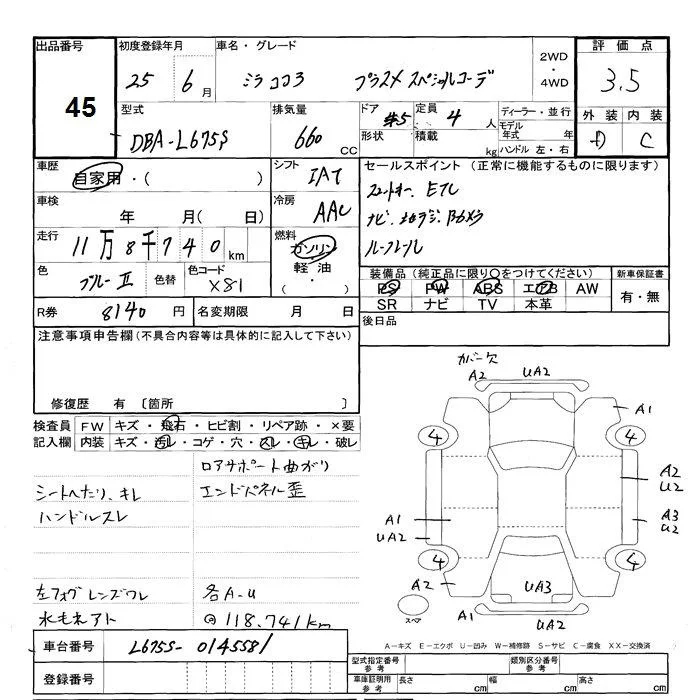 出品番号
45
初度登録年月
25 6月
車名・グレード
ミラココア プラスメ スペシャルコーデ
2WD
・
4WD
評価点
3.5
外装 内装
D C
型式
DBA-L675S
排気量
660 CC
ドア
#5
形状
定員
4人
積載
kg
ディーラー・並行
モデル
年式 年
ハンドル 左・右
車歴
自家用・( )
シフト
IAT
車検
年 月( 日)
冷房
AAC
走行
11万8千740km
燃料
ガソリン
・
軽油
( )
色
ブルーII
色替
色コード
X81
R券 8140円
名変期限 月 日
セールスポイント(正常に機能するものに限ります)
スマートキー、ETC
ナビ、地デジ、Bカメラ
ルーフレール
装備品(純正品に限り○をつけてください)
PS PW ABS エアB AW
SR ナビ TV 本革
新車保証書
有・無
後日品
注意事項申告欄(不具合内容等は具体的に記入して下さい)
修復歴 有 〔箇所 〕
検査員
記入欄
FW キズ・飛石・ヒビ割・リペア跡・×要
内装 キズ・汚レ・コゲ・穴・スレ・キレ・破レ
コアサポート曲がり
シートへたり、キレ
エンドパネル歪
ハンドルスレ
左フォグレンズワレ
各A-U
水モネアト
118.741km
カバー欠
A2 UA2
A1
4 4
A2
U2
A1
UA2
A3
U2
4 4
A2
UA3
A2
スペア
A1
UA2
A-キズ E-エクボ U-凹み W-補修跡 S-サビ C-腐食 XX-交換済
車台番号
L675S-0145581
登録番号
型式指定番号
参考
類別区分番号
参考
車庫証明用
参考
長さ cm
幅 cm
高さ cm